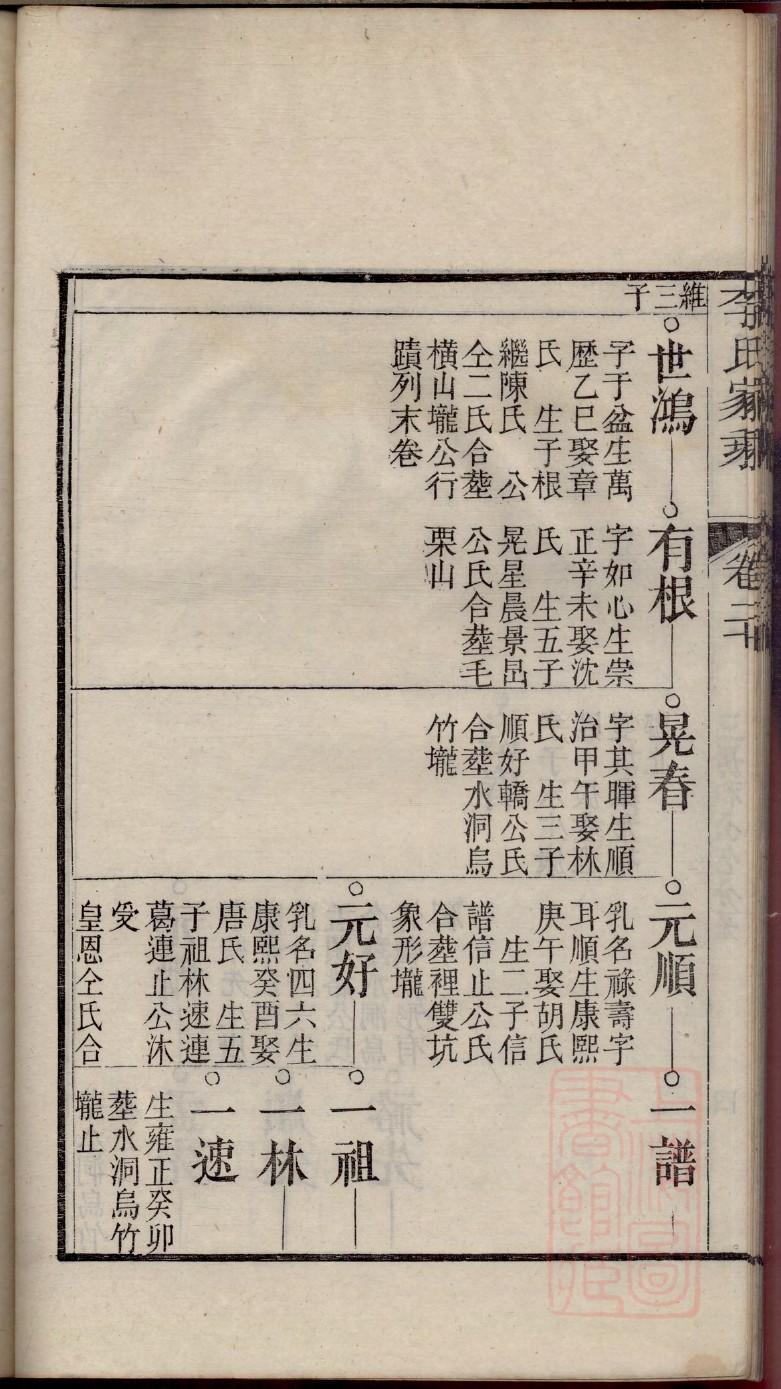 李氏家乘 卷二
維三子
世鴻
字于盆生萬
歷乙巳娶章
氏 生子根
繼陳氏 公
仝二氏合塟
橫山壠公行
蹟列末卷
有根
字如心生崇
正辛未娶沈
氏 生五子
晃星晨景昌
公氏合塟毛
栗山
晃春
字其暉生順
治甲午娶林
氏 生三子
順好轎公氏
合塟水洞烏
竹壠
元順
乳名祿壽字
耳順生康熙
庚午娶胡氏
生二子信
譜信止公氏
合塟裡雙坑
象形壠
元好
乳名四六生
康熙癸酉娶
唐氏 生五
子祖林速連
葛連止公沐
受
皇恩仝氏合
一譜
一祖
一林
一速
生雍正癸卯
塟水洞烏竹
壠止